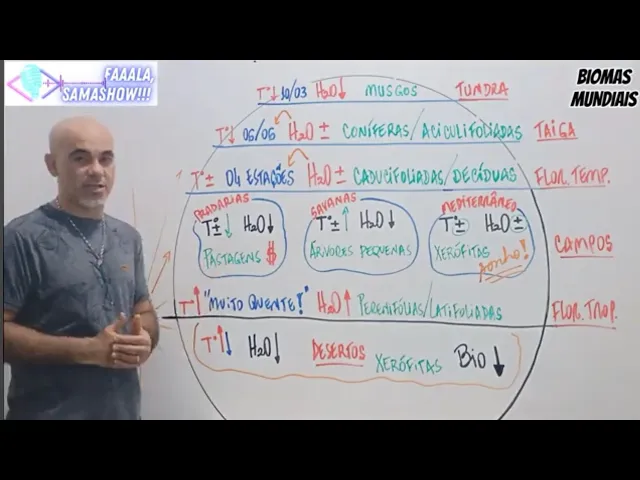 FAAALA,
SAMASHOW!!!
BIOMAS
MUNDIAIS
T°↓ 10/03 H2O↓ MUSGOS TUNDRA
T°↓ 06/06 H2O± CONÍFERAS/ACICULIFOLIADAS TAIGA
T°± 04 ESTAÇÕES H2O± CADUCIFOLIADAS/DECÍDUAS FLOR. TEMP.
PRADARIAS
T°±↓ H2O↓
PASTAGENS $
SAVANAS
T°±↑ H2O↓
ÁRVORES PEQUENAS
MEDITERRÂNEO
T°± H2O±
XERÓFITAS
sonho!
CAMPOS
T°↑ "MUITO QUENTE!" H2O↑ PERENIFÓLIAS/LATIFOLIADAS FLOR. TROP.
T°↑↓ H2O↓ DESERTOS XERÓFITAS BIO↓